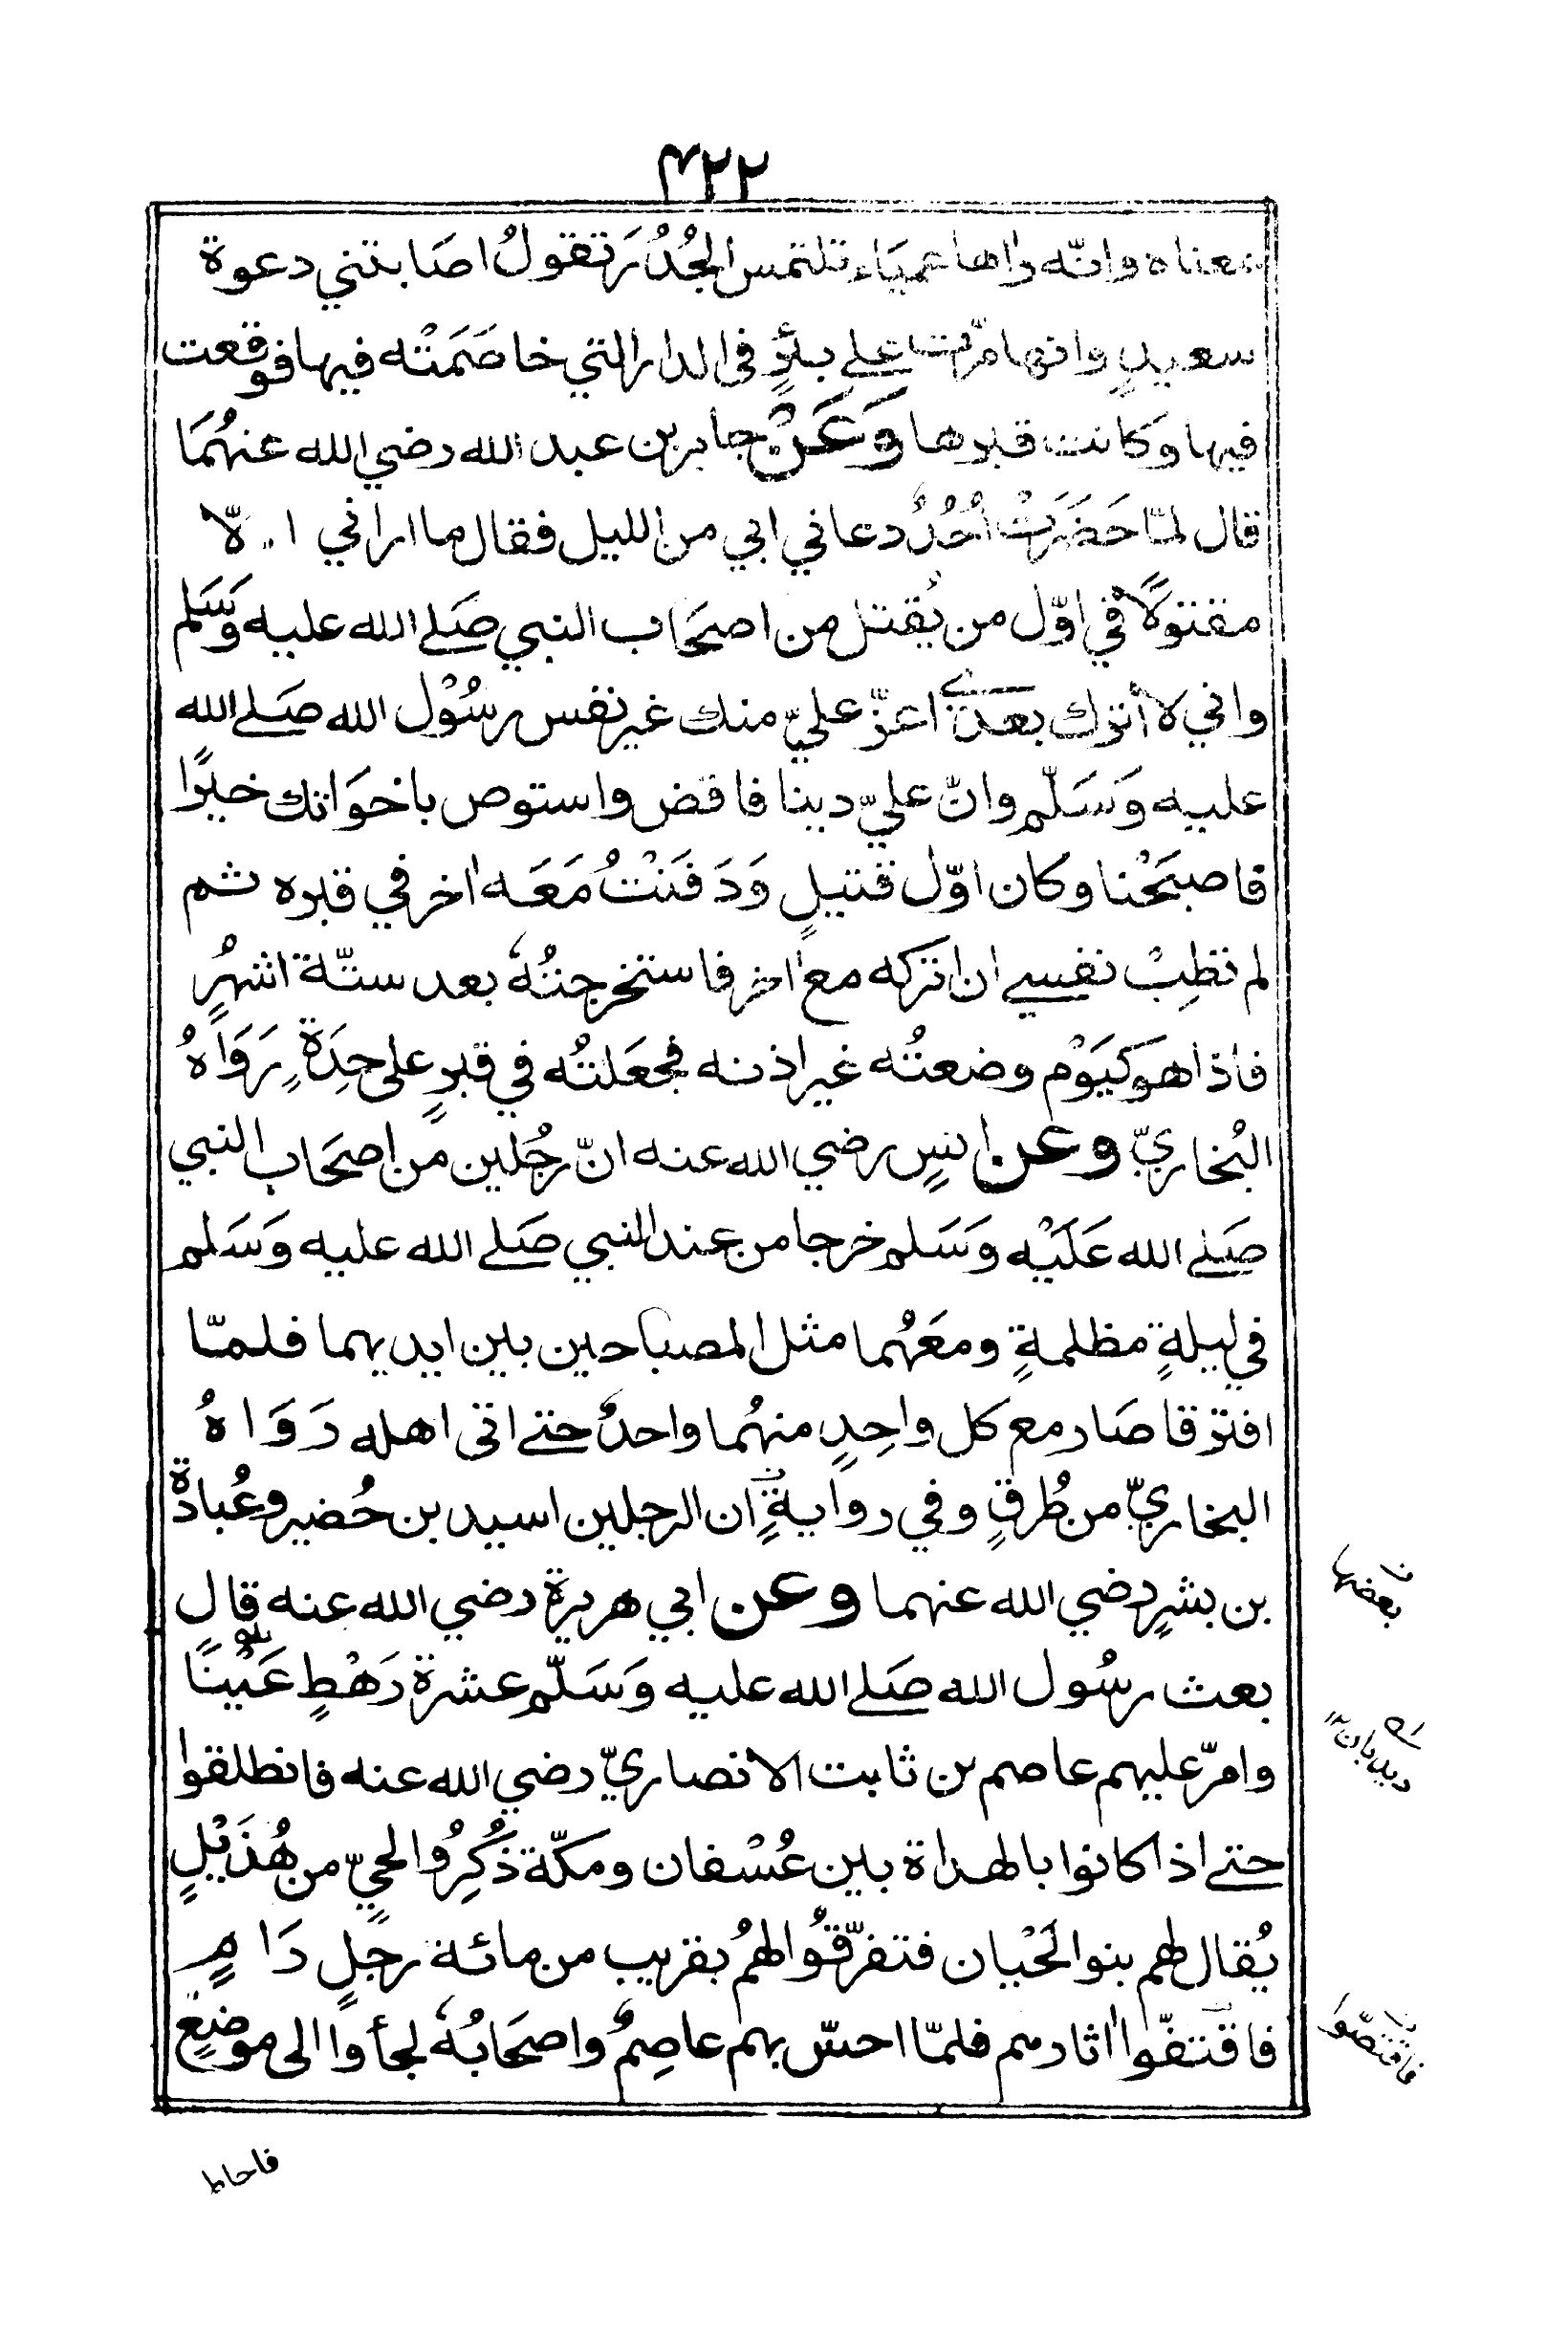 ۴۲۲
بمعناه وانّه راها عمياء تلتمس الجُدُرَ تقولُ اصابتني دعوة
سعيدٍ وانها مرّت علے بئرٍ فى الدار التي خاصَمَتْه فيها فوقعت
فيها وكانت قبرها وَعَنْ جابر بن عبد الله رضي الله عنهُمَا
قال لمّا حَضَرَتْ اُحُدٌ دعاني ابي من الليل فقال ما اراني الّا
مقتولًا في اوّل من يُقتل من اصحَاب النبي صَلے الله عليه وَسَلم
واني لا اترك بعدي اعزّ عليّ منك غير نفس رسُوْل الله صَلے الله
عليه وَسَلّم وانّ عليّ دينا فاقض واستوص باخوَاتك خيرًا
فاصبَحْنا وكان اوّل قتيلٍ وَدَفَنْتُ مَعَه اٰخر في قبره ثم
لم تطِبْ نفسے ان اتركه مع اٰخر فاستخرجتُهٗ بعد ستّة اشهُرٍ
فاذا هو كيَوْم وضعتُه غير اذنه فجعَلتُه في قبرٍ على حِدَةٍ رَوَاهُ
البُخاريّ وعن انسٍ رضي الله عنه انّ رجُلين من اصحَاب النبي
صَلے الله عَلَيْه وَسَلم خرجا من عند النبي صَلے الله عليه وَسَلم
في ليلةٍ مظلمةٍ ومعَهُما مثل المصباحين بين ايديهما فلمّا
افترقا صَار مع كل واحِدٍ منهُما واحدٌ حتے اتى اهله رَوَاهُ
البخاريّ من طُرقٍ وفي روايةٍ ان الرجلين اسيد بن حُضير وعُبادة
بن بشرٍ رضي الله عنهما وعن ابي هريرة رضي الله عنه قال
بعث رسُول الله صَلے الله عليه وَسَلّم عشرة رَهْطٍ عَيْنًا
وامرّ عليهم عاصم بن ثابت الانصاريّ رضي الله عنه فانطلقوا
حتے اذا كانوا بالهداة بين عُسْفان ومكّة ذُكِرُوا لحيّ من هُذَيْلٍ
يُقال لهم بنوا لَحْيان فتفرّقُوا لهمُ بقريب من مائة رجلٍ رَامٍ
فاقتفّوا اٰثارهم فلمّا احسّ بهم عاصِمٌ واصحَابُهٗ لجأوا الى موضعٍ
بعضها
ديدبان
فاقتصّوا
فاحاط